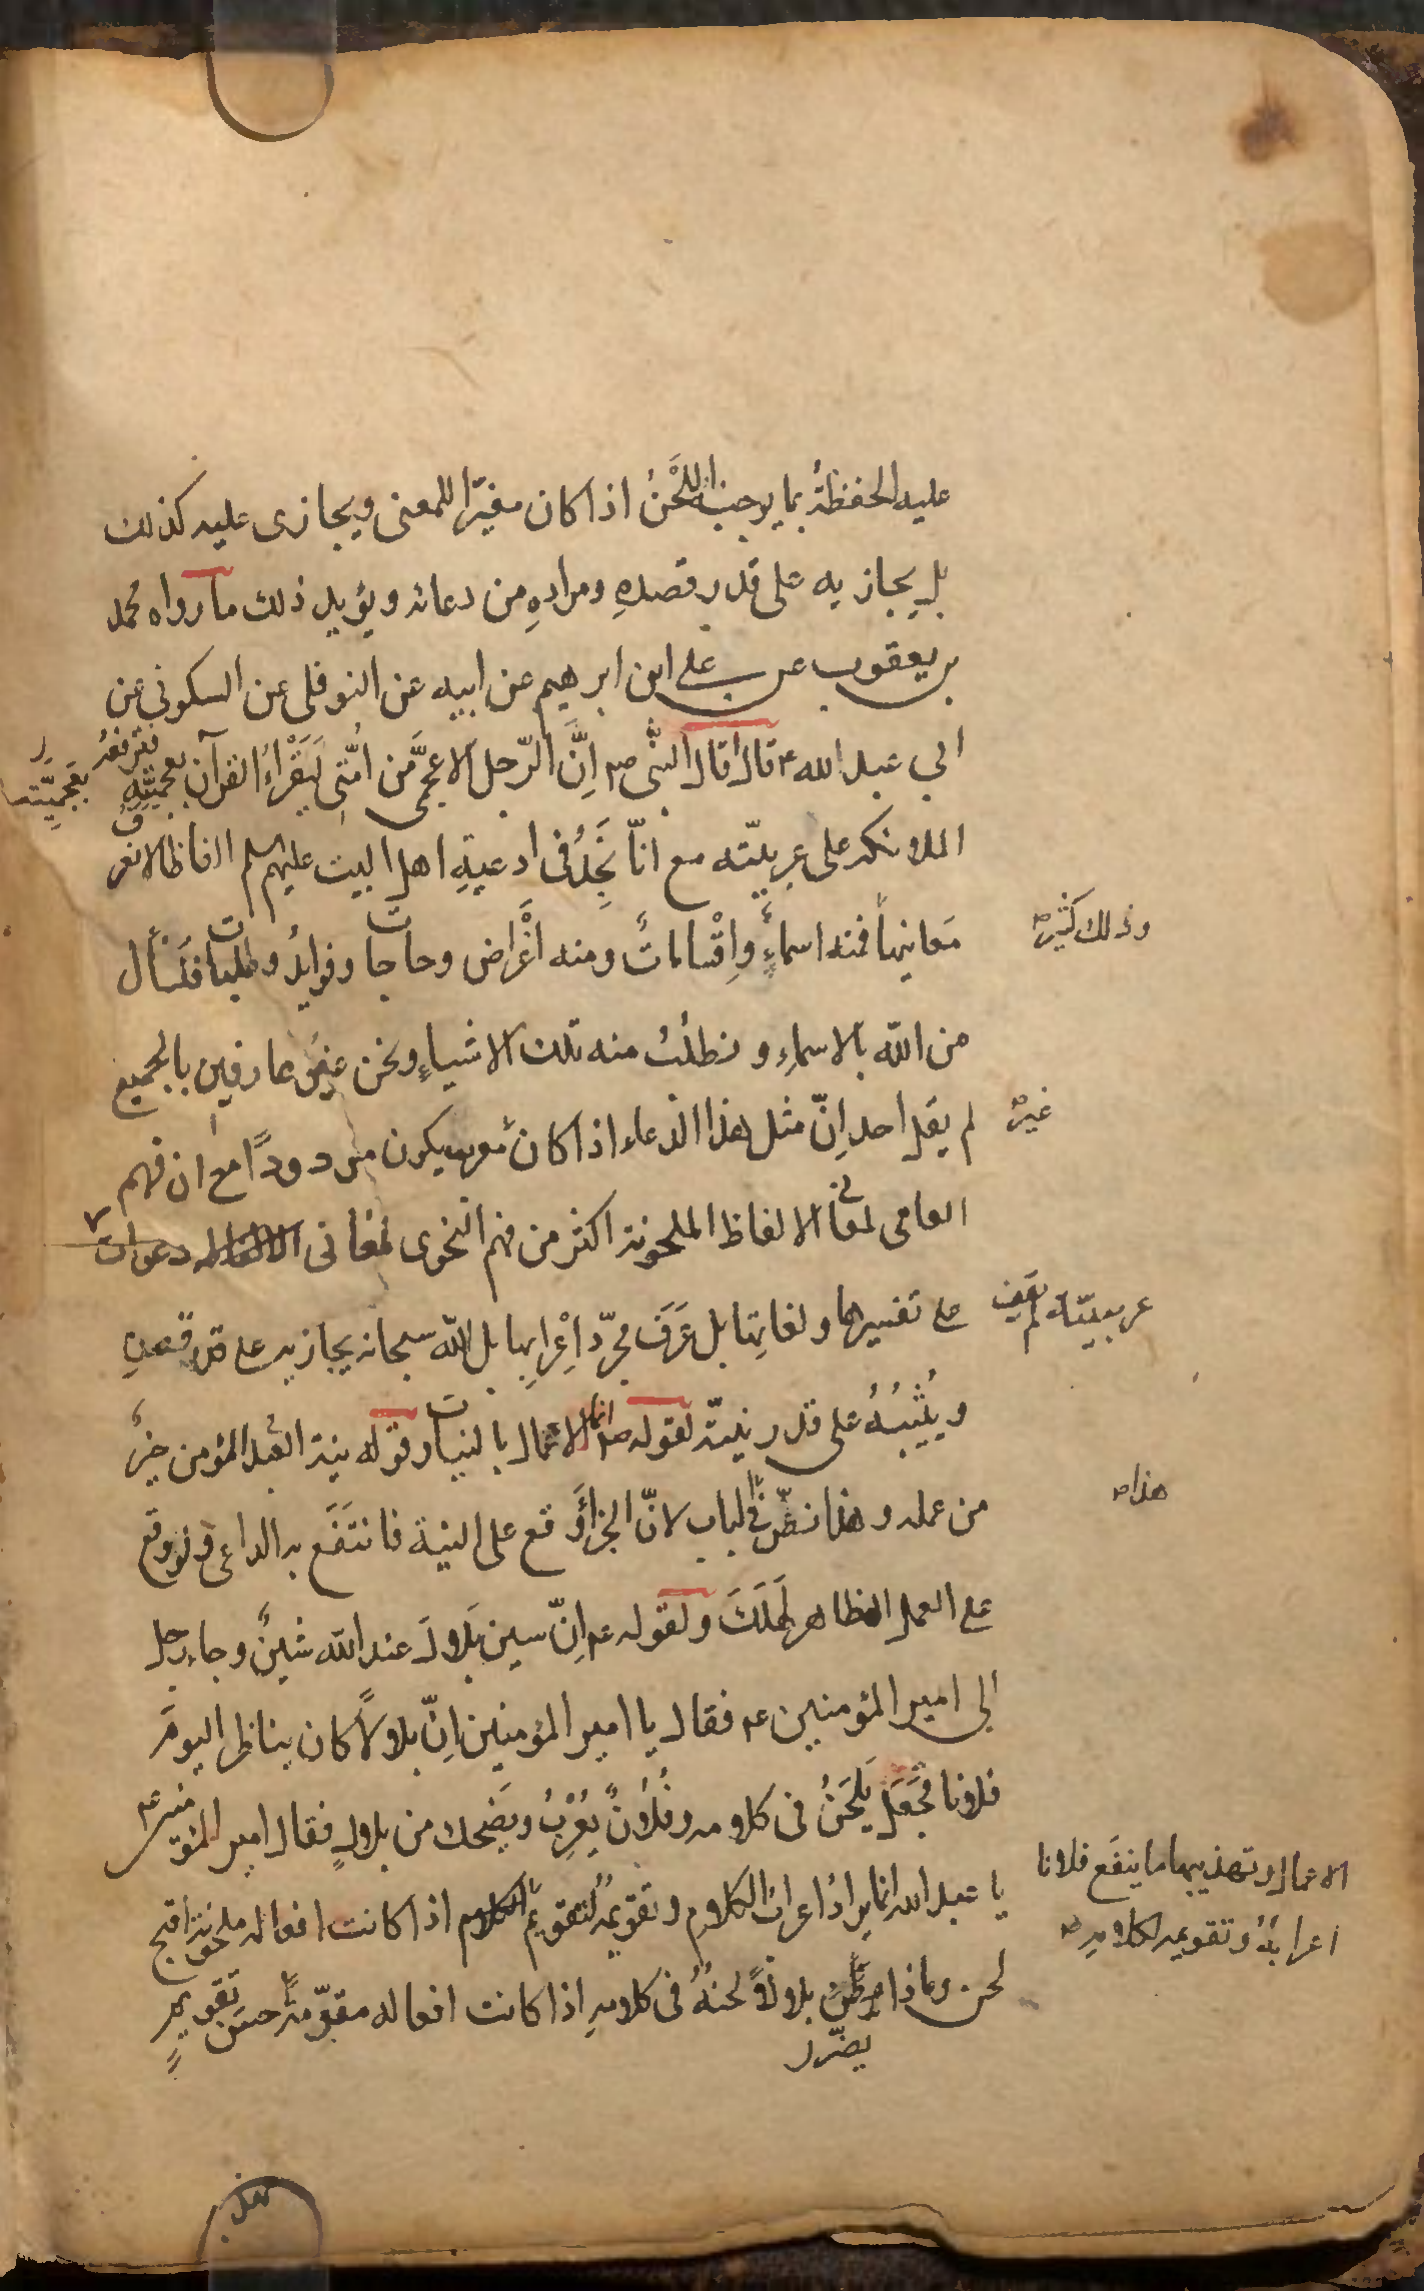 عليه الحفظةُ بما يوجبه اللَّحْنُ اذا كان مغيّرا للمعنى ويجازى عليه كذلك
بل يجازيه على قدر قصدهِ ومرادهِ من دعائه ويؤيد ذلك ما رواه محمد
بن يعقوب عن على ابن ابرهيم عن ابيه عن النوفلى عن السكونى عن
ابي عبد الله ع قال قال النبّى ص اِنَّ الرّجل الاعجمىَّ من امّتى لَيَقْرَاءُ القرآن بعجميّته فترفعُهُ
بعَجمِيَّته
الملائكة على عربيّته مع انّا نَجِدُ فى ادعيةِ اهل البيت عليهم السلم الفاظا لا نعرفُ
مَعانيهاَ فمنه اسماءٌ واِقْساماتٌ ومنه اَغْراض وحاجات وفوايدُ وطلبات فنَسْأل
وذلك كثير ص
من الله بالاسماءِ ونطلُبُ منه تلك الاشياءِ ونحن غير عارفين بالجميع
لم يقل احد اِنّ مثل هذا الدعاء اذا كان معربا يكون مردودًا مع ان فهم
غير ص
العامى لمعانى الالفاظ الملحونة اكثر من فهم النحوى لمعانى دعوات
عربيّة لم يقف
على تفسيرها ولغاتِها بل عَرَفَ مجرّد اِعْرابِها بل الله سبحانه يجازيه على قدر قصدهِ
ويُثيبُهُ على قدر نيّته لقوله ص انما الاعمال بالنيات وقوله نية العبد المؤمن خيرٌ
من عمله وهذا نصّ فى الباب لانّ الجزاءَ وقع على النية فانتَفَع به الداعى ولو وقع
هذا ص
على العمل الظاهر لَهَلَكَ ولقوله ع اِنّ سين بَلالَ عند الله شينٌ وجاء رجل
الى امير المؤمنين ع فقال يا امير المؤمنين اِنّ بلالاً كان يناظر اليومَ
فلانا فَجَعَلَ يَلحَنُ فى كلامه وفُلانٌ يُعْرِبُ ويَضحك من بلالٍ فقال امير المؤمنين ع
يا عبد الله انما يرادُ اعرابُ الكلام وتقويمُهُ لتقويم الاعمال وتهذيبها ما ينفَع فلانا
اعرابُهُ وتقويمه لكلامهِ ص
اذا كانت افعاله ملحونة اقبح
لحن وماذا يضّر بلالاً لحنُهُ فى كلامهِ اذا كانت افعاله مقوّمةً احسن تقويمٍ